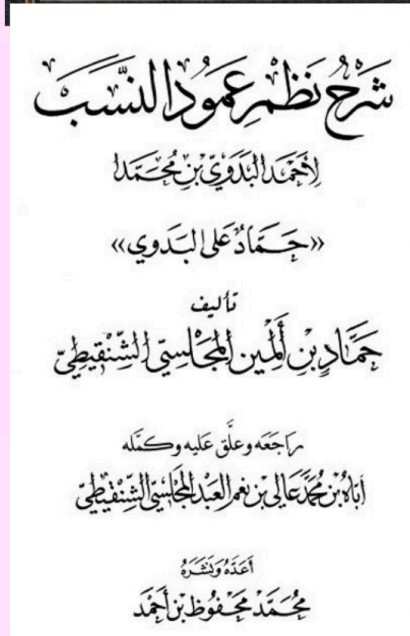 شَرْحُ نَظْمِ عَمُودِ النَّسَبِ
لِأَحْمَدَ البَدَوِيِّ بْنِ مُحَمَّدا
«حَمَّادٌ عَلَى البَدَوِي»
تأليف
حَمَّادِ بْنِ أَلْمِينِ المَجْلِسِيِّ الشِّنْقِيطِيِّ
رَاجَعَه وعلَّق عَليه وكمَّله
ابَّاهُ بْنُ مُحَمَّد عَالِي بْنِ نعم العَبْدِ المَجْلِسِي الشِّنْقِيطِيّ
أَعَدَّهُ وَنَشَرَهُ
مُحَمَّد مَحْفُوظ بْن أَحْمَد